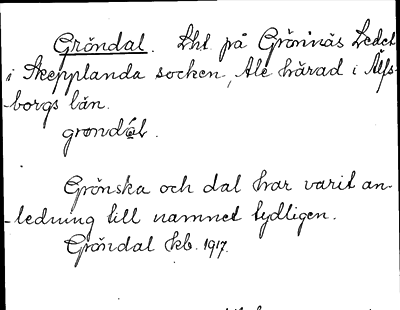 Gröndal. Lht på Grönnäs Ledet
i Skepplanda socken, Ale härad i Älfs-
borgs län.
grondal.
Grönska och dal har varit an-
ledning till namnet tydligen.
Gröndal kb. 1917.